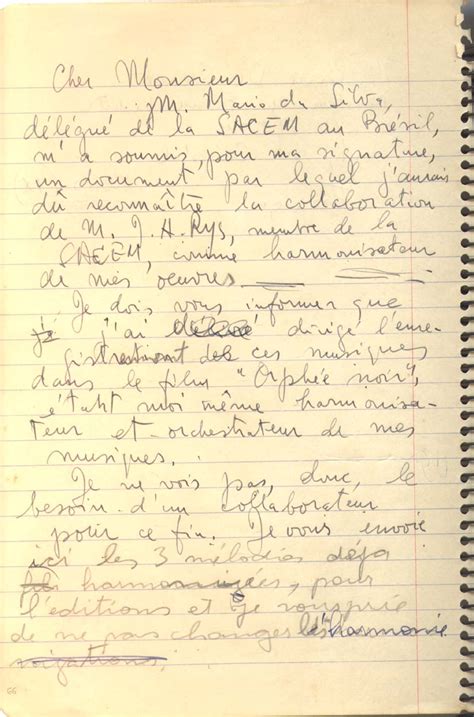 Cher Monsieur
M. Mario da Silva,
délégué de la SACEM au Brésil,
m'a soumis, pour ma signature,
un document par lequel j'aurais
dû reconnaître la collaboration
de M. J.A. Rys, membre de la
SACEM, comme harmonisateur
de mes oeuvres
Je dois vous informer que
j'ai dirigé l'enre-
gistrement de ces musiques
dans le film "Orphée noir",
étant moi même harmonisa-
teur et orchestrateur de mes
musiques.
Je ne vois pas, donc, le
besoin d'un collaborateur
pour ce fin. Je vous envoie
ici les 3 mélodies déja
harmonisées, pour
l'editions et je vous prie
de ne pas changer les harmonie
66